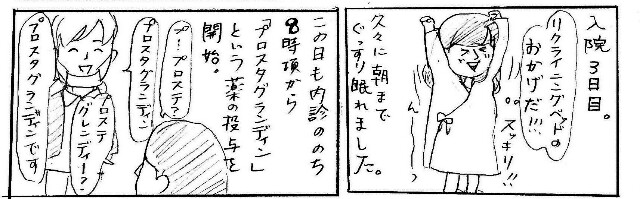 入院3日目。
リクライニングベッドの
おかげだ!!!
スッキリ!!
ん〜っ
久々に朝まで
ぐっすり眠れました。
この日も内診ののち
8時頃から
「プロスタグランディン」
という薬の投与を
開始。
プープロステ?
プロスタグランディン
プロステ
グレンディー?
プロスタグランディンです